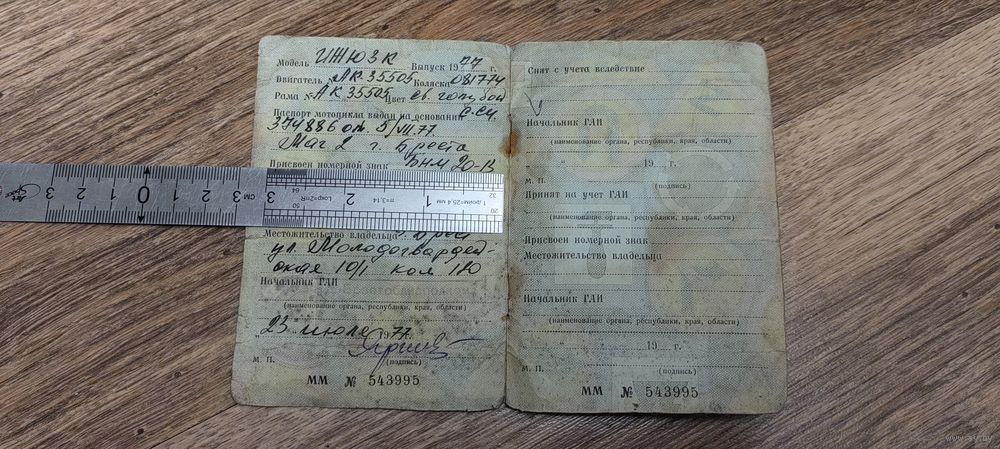 Модель ИЖЮ3К Выпуск 1977 г.
Двигатель № АК35505 Коляска 081774
Рама № АК35505 Цвет св. голубой
Паспорт мотоцикла выдан на основании
374886 от 5/VII.77
Маг 2 г. Бреста
Присвоен номерной знак БНМ 20-13
Местожительство владельца: г. Брест
ул. Молодогвардей-
ская 10/1 ком 180
Начальник ГАИ
(наименование органа, республики, края, области)
„23" июля 1977 г.
М. П. (подпись)
ММ № 543995
Снят с учета вследствие
Начальник ГАИ
(наименование органа, республики, края, области)
„ " 19 г.
М. П. (подпись)
Принят на учет ГАИ
(наименование органа, республики, края, области)
Присвоен номерной знак
Местожительство владельца
Начальник ГАИ
(наименование органа, республики, края, области)
„ " 19 г.
М. П. (подпись)
ММ № 543995
3 2 1 0 1 2 3 СМ 3 2 1
64 32
Lокр=2πR π=3,14 1 дюйм=25,4 мм
50 20
www.ay.by